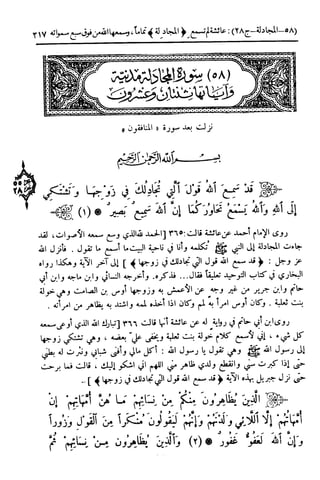 (٥٨-المجادلة-ج٢٨): عائشة لم تسمع ﴿المجادلة﴾ تماماً، وسمعها الله من فوق سبع سمواته ٣١٧
(٥٨) سورة المجادلة مدنية
وآياتها ثنتان وعشرون
نزلت بعد سورة «المنافقون»
بسم الله الرحمن الرحيم
﴿ قد سمع الله قول التي تجادلك في زوجها وتشتكي
إلى الله والله يسمع تحاوركما إن الله سميع بصير ﴾ (١)
روى الإمام أحمد عن عائشة قالت: ٣٦٥ [الحمد لله الذي وسع سمعه الأصوات، لقد
جاءت المجادلة إلى النبي ﷺ تكلمه وأنا في ناحية البيت ما أسمع ما تقول. فأنزل الله
عز وجل: ﴿قد سمع الله قول التي تجادلك في زوجها﴾] إلى آخر الآية وهكذا رواه
البخاري في كتاب التوحيد تعليقاً فقال... فذكره. وأخرجه النسائي وابن ماجه وابن أبي
حاتم وابن جرير من غير وجه عن الأعمش به وزوجها أوس بن الصامت وهي خولة
بنت ثعلبة. وكان أوس امرأ به لمم وكان إذا أخذه لممه واشتد به يظاهر من امرأته.
روى ابن أبي حاتم في رواية له عن عائشة أنها قالت ٣٦٦ [تبارك الله الذي أوعى سمعه
كل شيء، إني لأسمع كلام خولة بنت ثعلبة ويخفى علي بعضه، وهي تشتكي زوجها
إلى رسول الله ﷺ وهي تقول يا رسول الله: أكل مالي وأفنى شبابي ونثرت له بطني
حتى إذا كبرت سني وانقطع ولدي ظاهر مني اللهم إني أشكو إليك، قالت فما برحت
حتى نزل جبريل بهذه الآية ﴿قد سمع الله قول التي تجادلك في زوجها﴾]..
﴿ الذين يظاهرون منكم من نسائهم ما هن أمهاتهم إن
أمهاتهم إلا اللائي ولدنهم وإنهم ليقولون منكراً من القول وزوراً
وإن الله لعفو غفور ﴾ (٢) والذين يظاهرون من نسائهم ثم